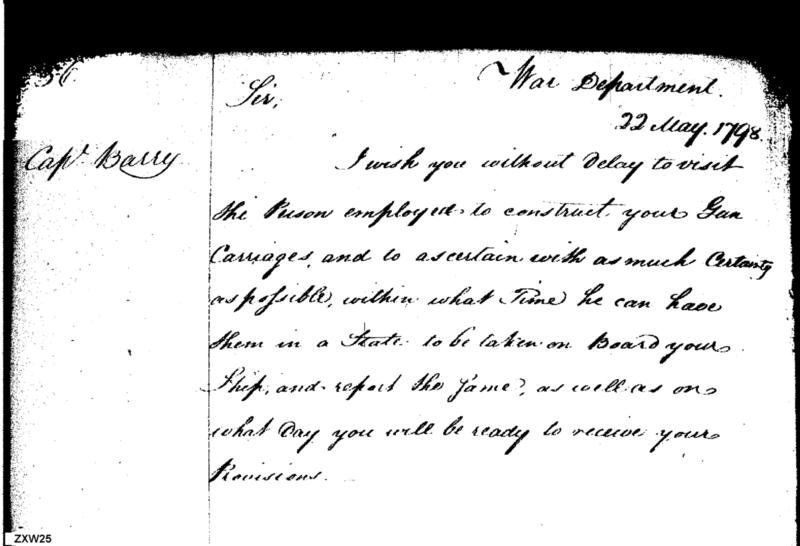 56
War Department.
Sir,
22 May. 1798.
Capt. Barry
I wish you without Delay to visit
the Person employed to construct your Gun
Carriages, and to ascertain with as much Certainty
as possible, within what Time he can have
them in a State to be taken on Board your
Ship, and report the same, as well as on
what Day you will be ready to receive your
Provisions.
ZXW25